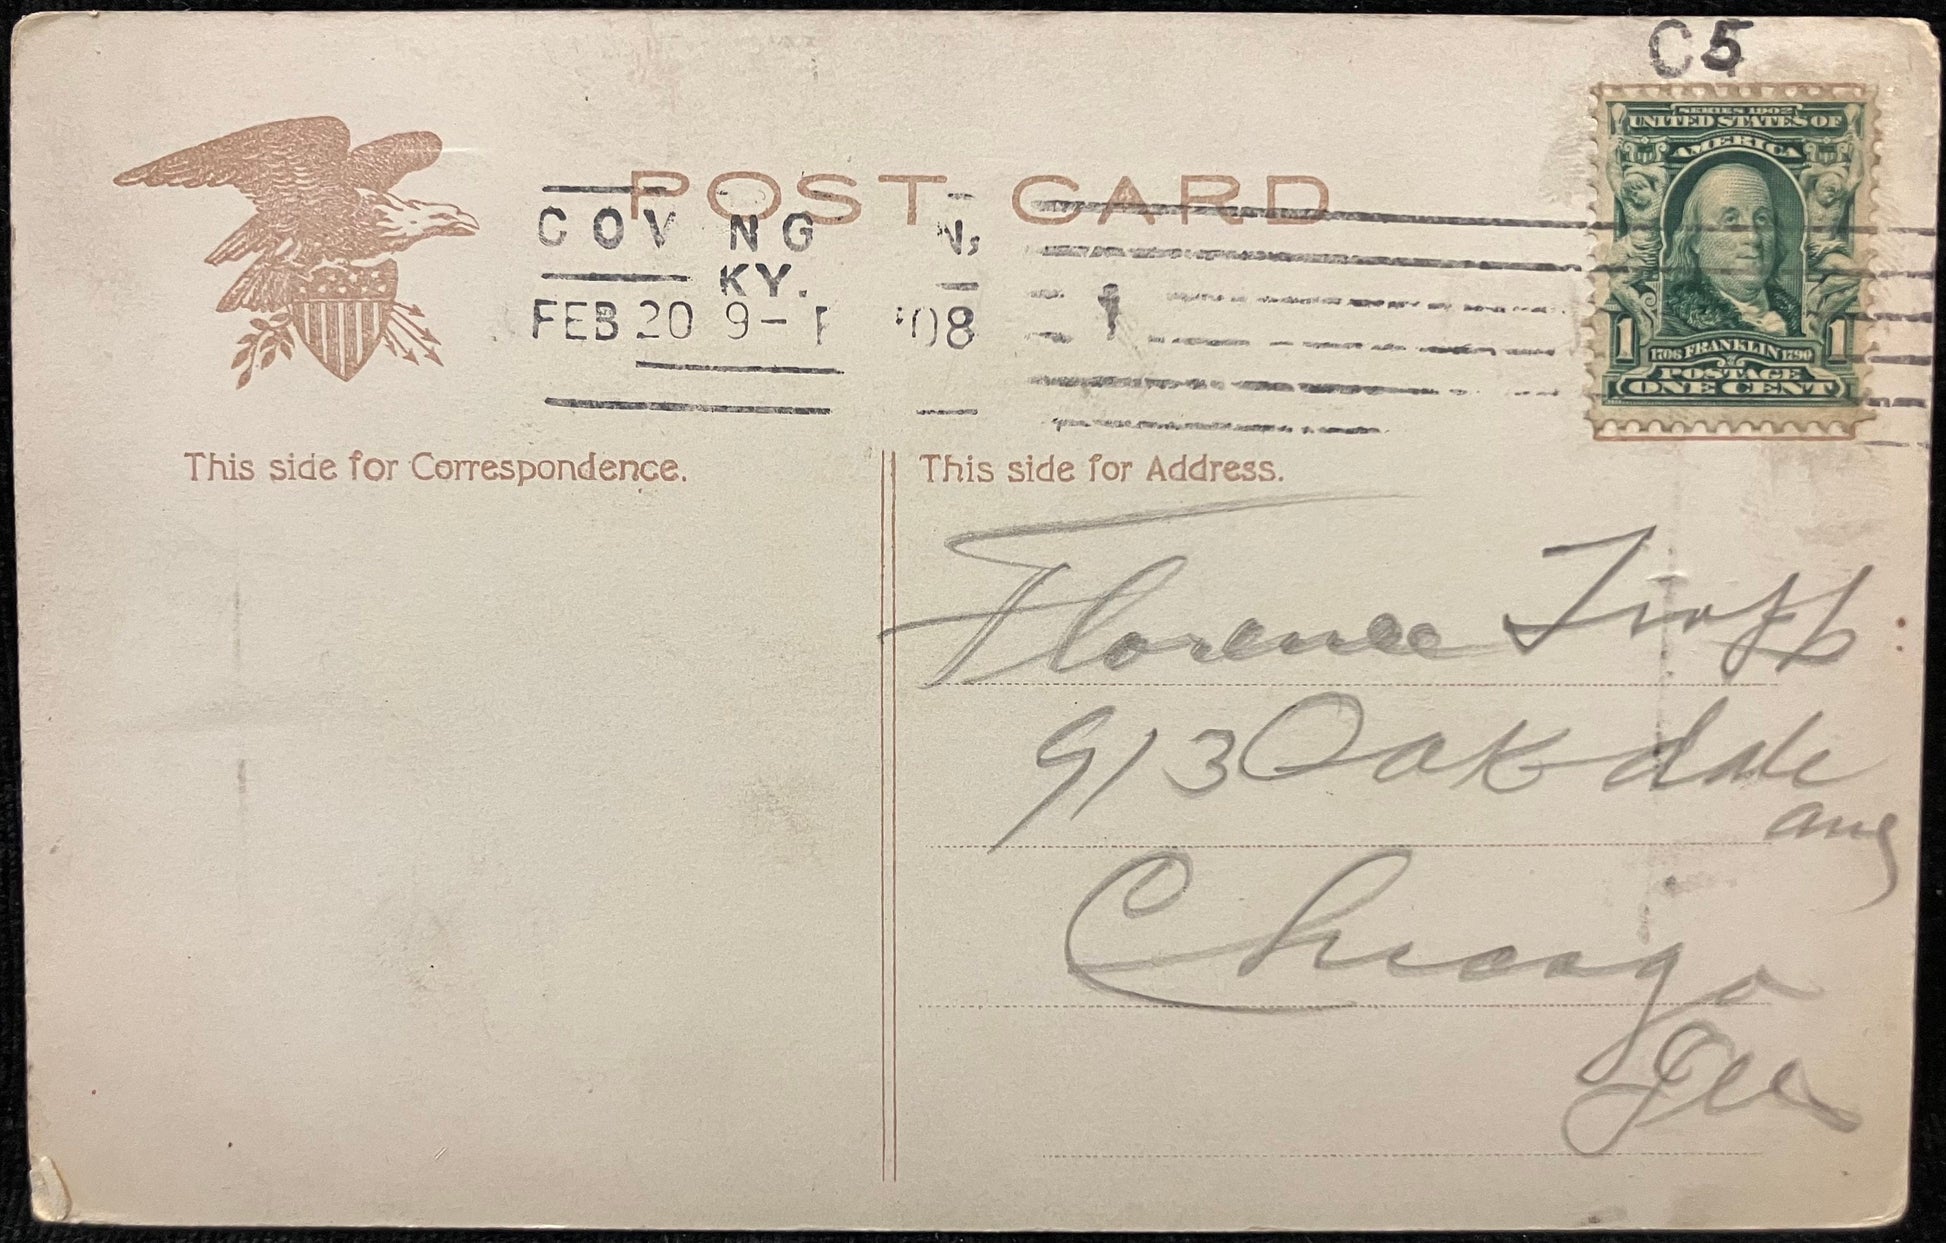 C5
SERIES 1902
UNITED STATES OF
AMERICA
1 1706 FRANKLIN 1790 1
POSTAGE
ONE CENT
POST CARD
COV NG N,
KY.
FEB 20 9- '08
This side for Correspondence.
This side for Address.
Florence
913 Oakdale
Chicago
Ill